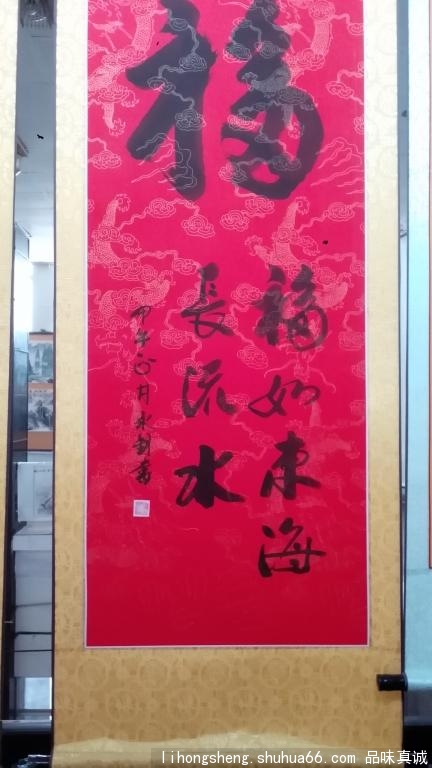 福
福如東海
長流水
甲午正月永剑書
lihongsheng.shuhua66.com 品味真诚